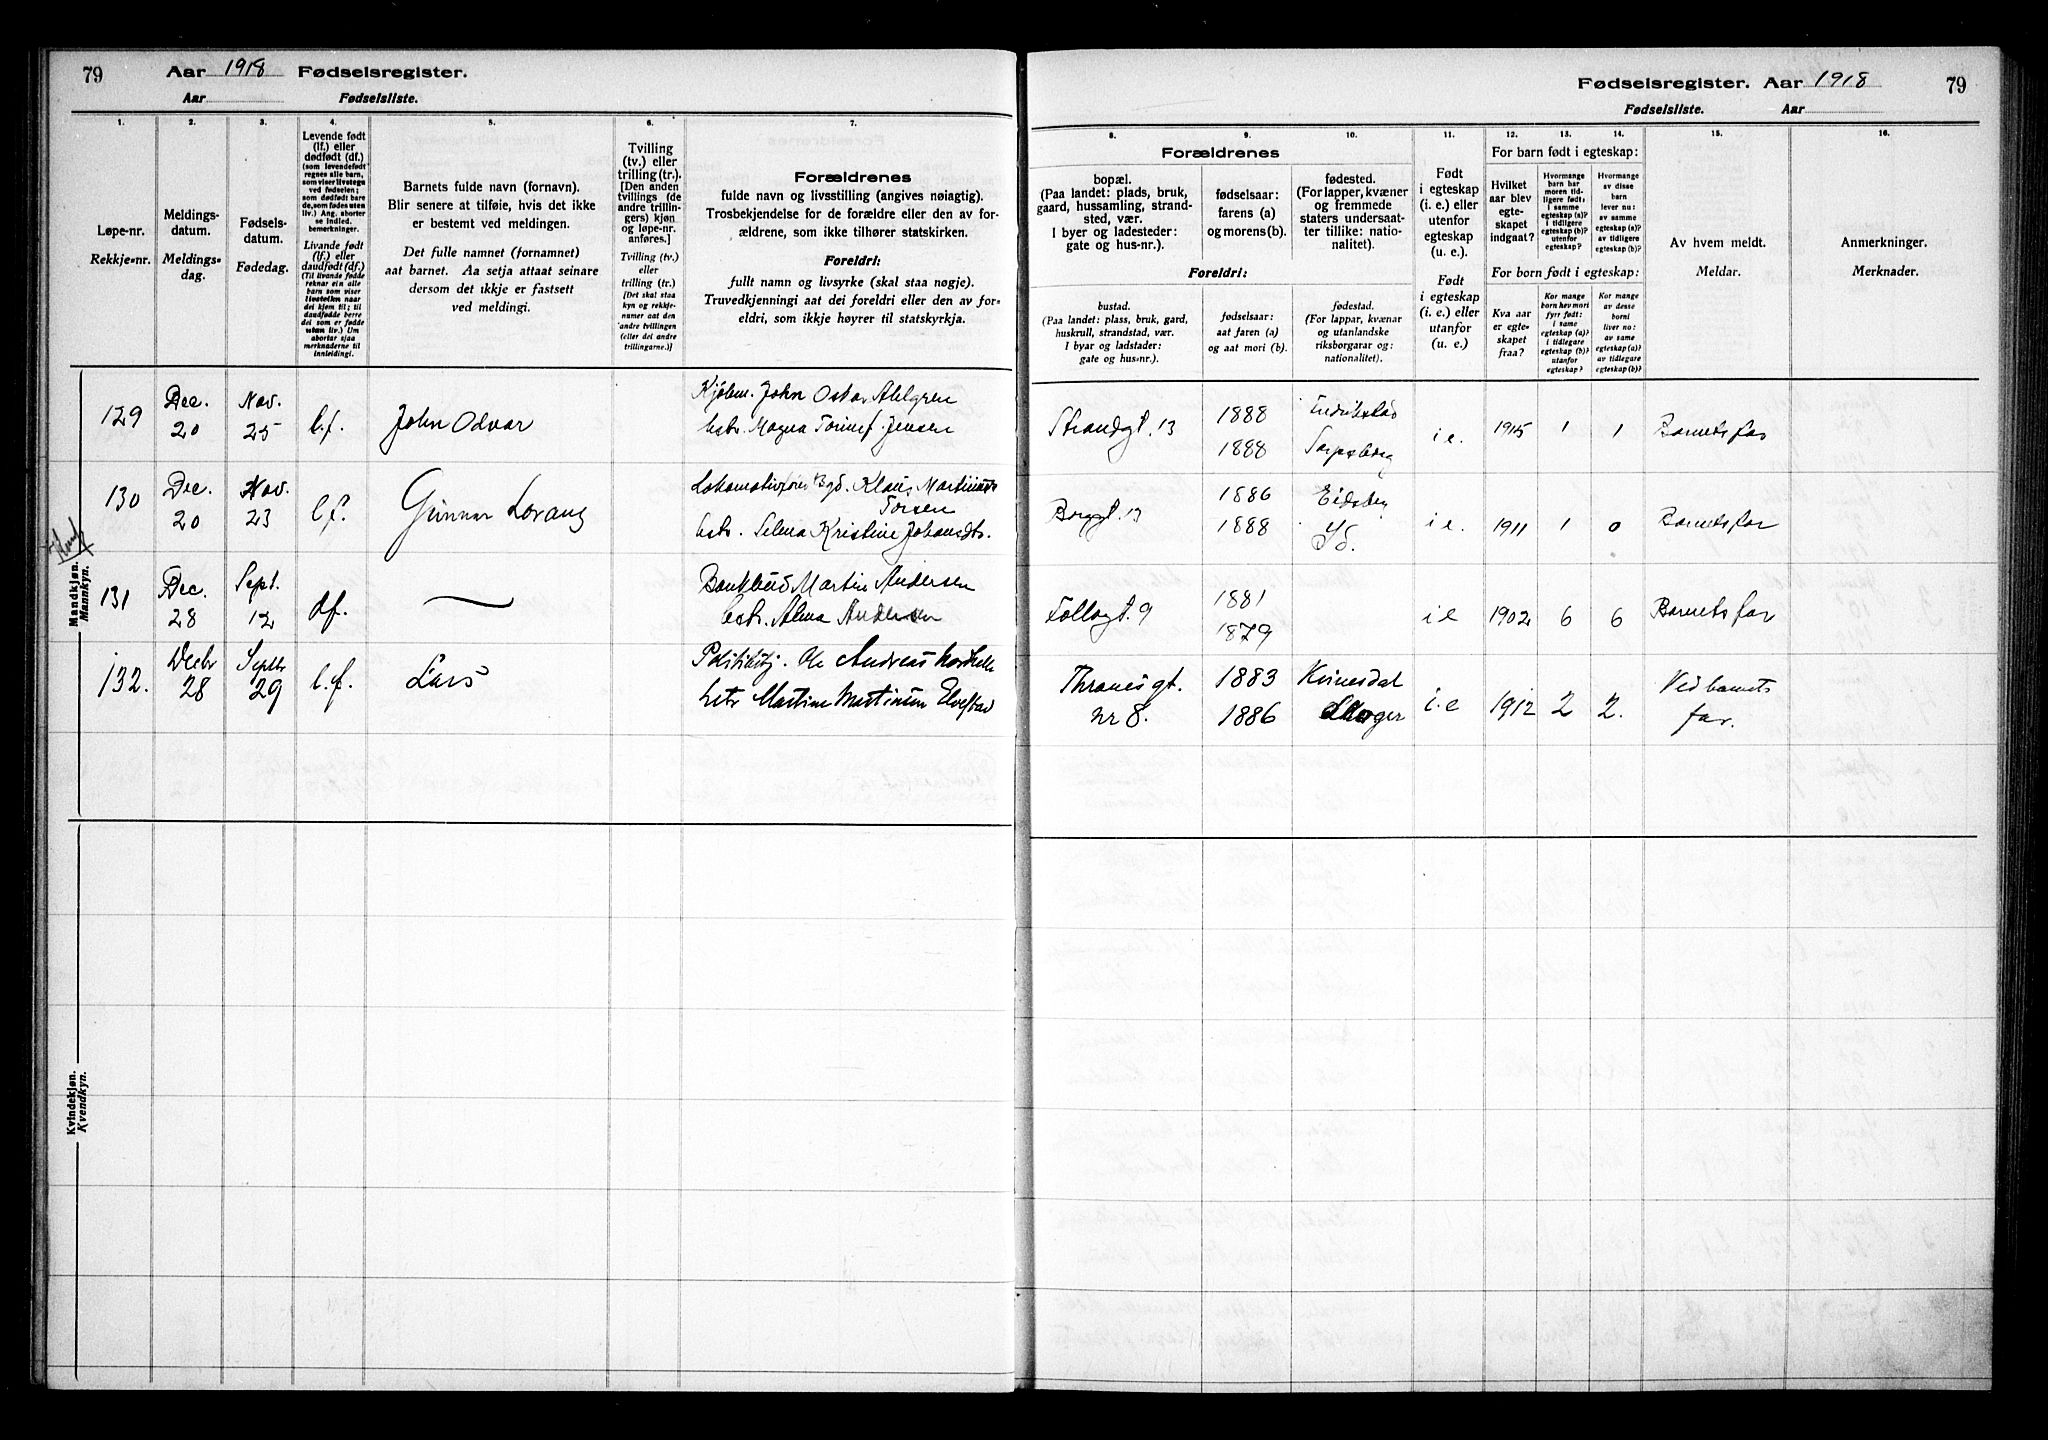 79
Aar 1918 Fødselsregister.
Aar Fødselsliste.
1.
2.
3.
4.
5.
6.
7.
Løpe-nr.
Rekkje-nr.
Meldings-
datum.
Meldings-
dag.
Fødsels-
datum.
Fødedag.
Levende født
(lf.) eller
dødfødt (df.)
(som levendefødt
regnes alle barn,
som viser livstegn
ved fødselen;
som dødfødt bare
de, som fødes uten
liv.) Ang. aborter
se indled.
bemerkninger.
Livande født
(lf.) eller
daudfødt (df.)
(Til livande fødde
reknar ein alle
barn som viser
livsteikn naar
dei kjem til; til
daudfødde berre
dei som er fødde
utan liv.) Um
abortar sjaa
merknaderne til
innleidingi.
Barnets fulde navn (fornavn).
Blir senere at tilføie, hvis det ikke
er bestemt ved meldingen.
Det fulle namnet (fornamnet)
aat barnet. Aa setja attaat seinare
dersom det ikkje er fastsett
ved meldingi.
Tvilling
(tv.) eller
trilling (tr.).
[Den anden
tvillings (de
andre trillin-
gers) kjøn
og løpe-nr.
anføres.]
Tvilling (tv.)
eller
trilling (tr.)
[Det skal staa
kyn og rekkje-
numer aat den
andre tvillingen
(eller dei andre
trillingarne.)]
Forældrenes
fulde navn og livsstilling (angives nøiagtig).
Trosbekjendelse for de forældre eller den av for-
ældrene, som ikke tilhører statskirken.
Foreldri:
fullt namn og livsyrke (skal staa nøgje).
Truvedkjenningi aat dei foreldri eller den av for-
eldri, som ikkje høyrer til statskyrkja.
Mandkjøn.
Mannkyn.
129 Dec. 20 Nov. 25 l.f. John Odvar
Kjøbm. John Oskar Ahlgren
hstr. Magna Jensen
130 Dec. 20 Nov. 23 l.f. Gunnar Lorang
Klaus Martinius
Torsen
hstr. Selma Kristine Johansdtr.
131 Dec. 28 Sept. 12 df. —
Martin Andersen
hstr. Alma Andersen
132. Decbr 28 Septbr 29 l.f. Lars
Politibtj. Ole Andreas
hstr Martine Martinsen Elvestad
Kvindekjøn.
Kvendkyn.
Fødselsregister. Aar 1918
79
Fødselsliste. Aar
8.
9.
10.
11.
12.
13.
14.
15.
16.
Forældrenes
bopæl.
(Paa landet: plads, bruk,
gaard, hussamling, strand-
sted, vær.
I byer og ladesteder:
gate og hus-nr.).
fødselsaar:
farens (a)
og morens (b).
fødested.
(For lapper, kvæner
og fremmede
staters undersaat-
ter tillike: natio-
nalitet).
Foreldri:
bustad.
(Paa landet: plass, bruk, gard,
huskrull, strandstad, vær.
I byar og ladstader:
gate og hus-nr.).
fødselsaar:
aat faren (a)
og aat mori (b).
fødestad.
(For lappar, kvænar
og utanlandske
riksborgarar og:
nationalitet).
Født
i egteskap
(i. e.) eller
utenfor
egteskap
(u. e.).
Født
i egteskap
(i. e.) eller
utanfor
egteskap
(u. e.)
For barn født i egteskap:
Hvilket
aar blev
egte-
skapet
indgaat?
Hvormange
barn har
moren tid-
ligere født:
i samme
egteskap (a)?
i tidligere
egteskap (b)?
utenfor
egteskap?
Hvormange
av disse
barn
lever nu:
av samme
egteskap (a)?
av tidligere
egteskap (b)?
For born født i egteskap:
Kva aar
er egte-
skapet
fraa?
Kor mange
born hev mori
fyrr født:
i same
egteskap (a)?
i tidlegare
egteskap (b)?
utanfor
egteskap?
Kor mange
av desse
borni
liver no:
av same
egteskap (a)?
av tidlegare
egteskap (b)?
Av hvem meldt.
Meldar.
Anmerkninger.
Merknader.
Strandgt. 13 1888 Fredrikstad i e. 1915 1 1 Barnets far
1888 Sarpsborg
Borggt. 13 1886 Eidsberg i e. 1911 1 0 Barnets far
1888 Id.
Tollbgt. 9 1881 i e 1902 6 6 Barnets far
1879
Thranes gt. 1883 Kvinesdal i. e 1912 2 2. Ved barnets
nr 8. 1886 Skoger far.